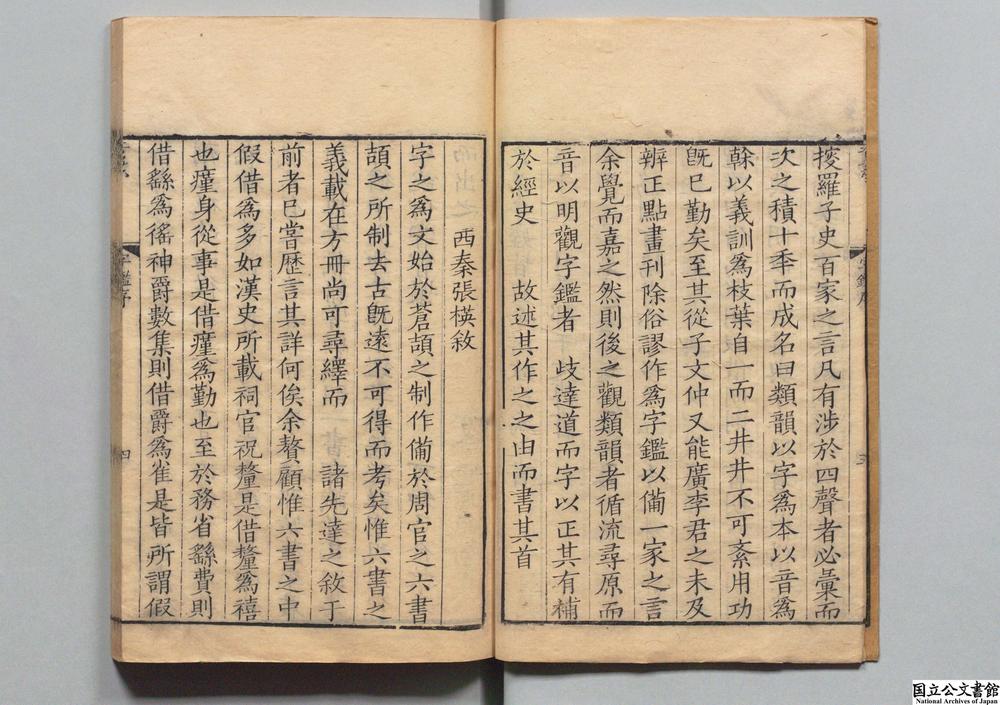 搜羅子史百家之言凡有涉於四聲者必彙而
次之積十秊而成名曰類韻以字爲本以音爲
榦以義訓爲枝葉自一而二井井不可紊用功
旣已勤矣至其從子文仲又能廣李君之未及
辨正點畫刊除俗謬作爲字鑑以備一家之言
余覽而嘉之然則後之觀類韻者循流尋原而
音以明觀字鑑者 歧達道而字以正其有補
於經史 故述其作之之由而書其首
西秦張楧敘
字之爲文始於蒼頡之制作備於周官之六書
頡之所制去古旣遠不可得而考矣惟六書之
義載在方冊尚可尋繹而 諸先達之敘于
前者已嘗歷言其詳何俟余贅顧惟六書之中
假借爲多如漢史所載祠官祝釐是借釐爲禧
也癉身從事是借癉爲勤也至於務省繇費則
借繇爲徭神爵數集則借爵爲雀是皆所謂假
字鑑序
四
国立公文書館
National Archives of Japan